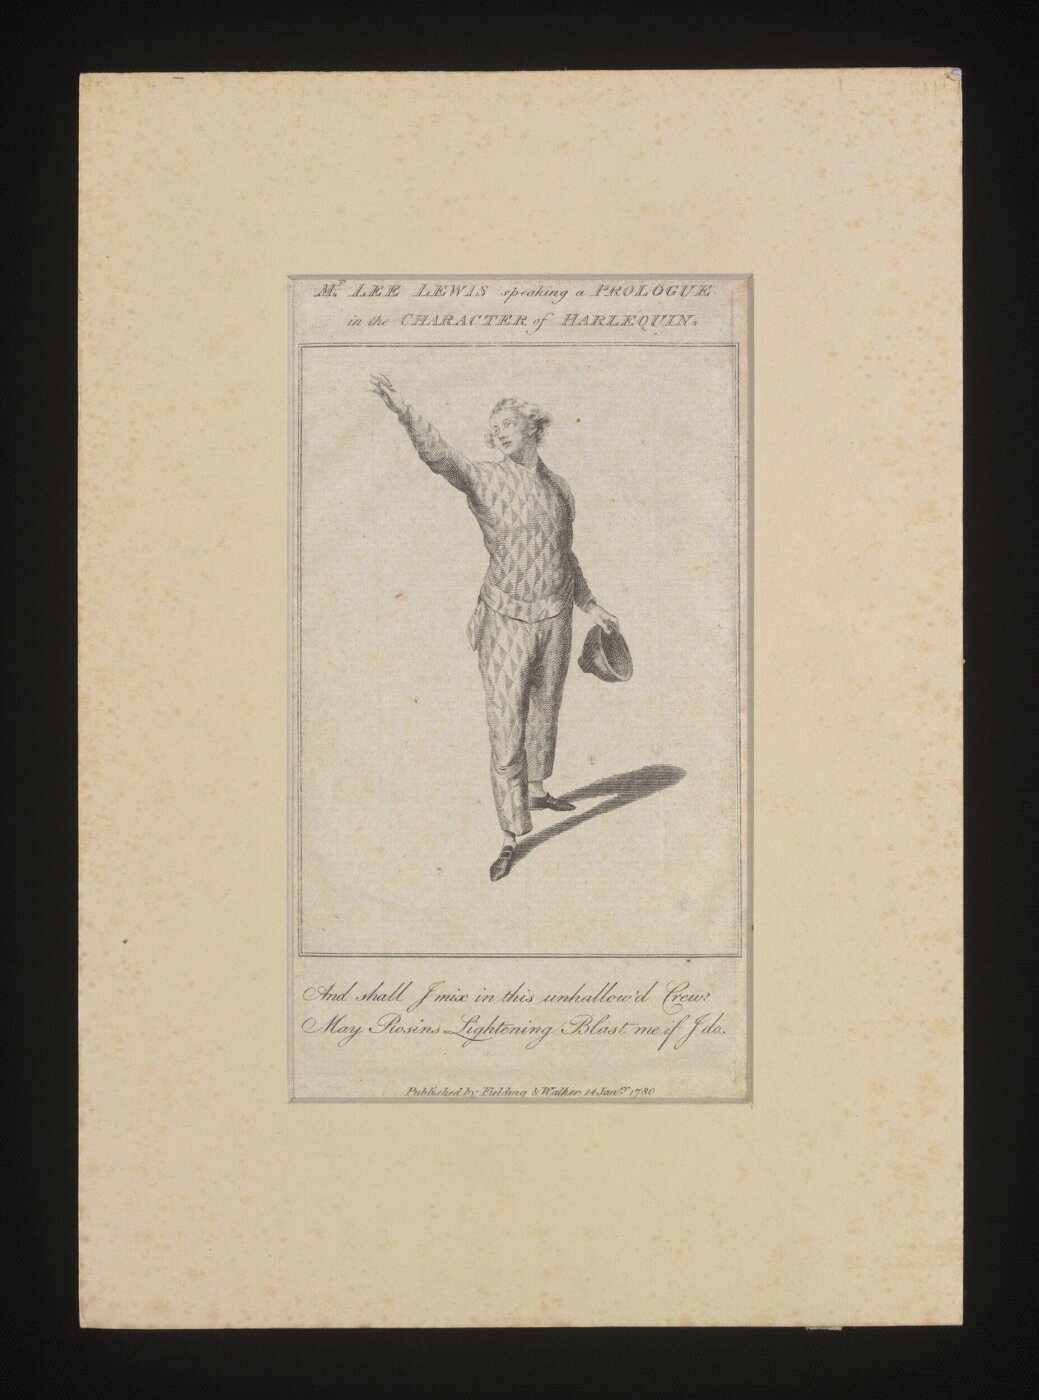 Mr. LEE LEWIS speaking a PROLOGUE
in the CHARACTER of HARLEQUIN.
And shall I mix in this unhallow'd Crew?
May Rosins Lightening Blast me if I do.
Published by Fielding & Walker 14 Jany. 1780.